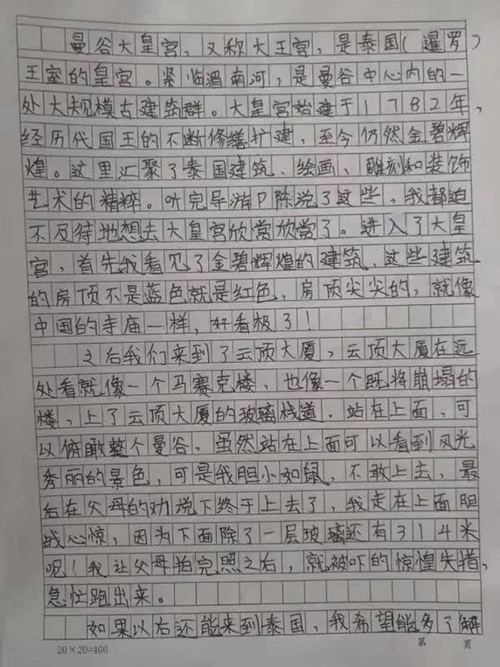 曼谷大皇宫，又称大王宫，是泰国（暹罗）
王室的皇宫。紧临湄南河，是曼谷中心内的一
处大规模古建筑群。大皇宫始建于1782年，
经历代国王的不断修缮扩建，至今仍然金碧辉
煌。这里汇聚了泰国建筑、绘画、雕刻和装饰
艺术的精粹。听完导游陈说了这些，我都迫
不及待地想去大皇宫欣赏欣赏了。进入了大皇
宫，首先我看见了金碧辉煌的建筑，这些建筑
的房顶不是蓝色就是红色，房顶尖尖的，就像
中国的寺庙一样，好看极了！
之后我们来到了云顶大厦，云顶大厦在远
处看就像一个马赛克楼，也像一个既将崩塌的
楼，上了云顶大厦的玻璃栈道，站在上面，可
以俯瞰整个曼谷，虽然站在上面可以看到风光
秀丽的景色，可是我胆小如鼠，不敢上去，最
后在父母的劝说下终于上去了，我走在上面胆
战心惊，因为下面除了一层玻璃还有314米
呢！我让父母拍完照之后，就被吓的惊惶失措，
急忙跑出来。
如果以后还能来到泰国，我希望能多了解
20×20=400 第 页